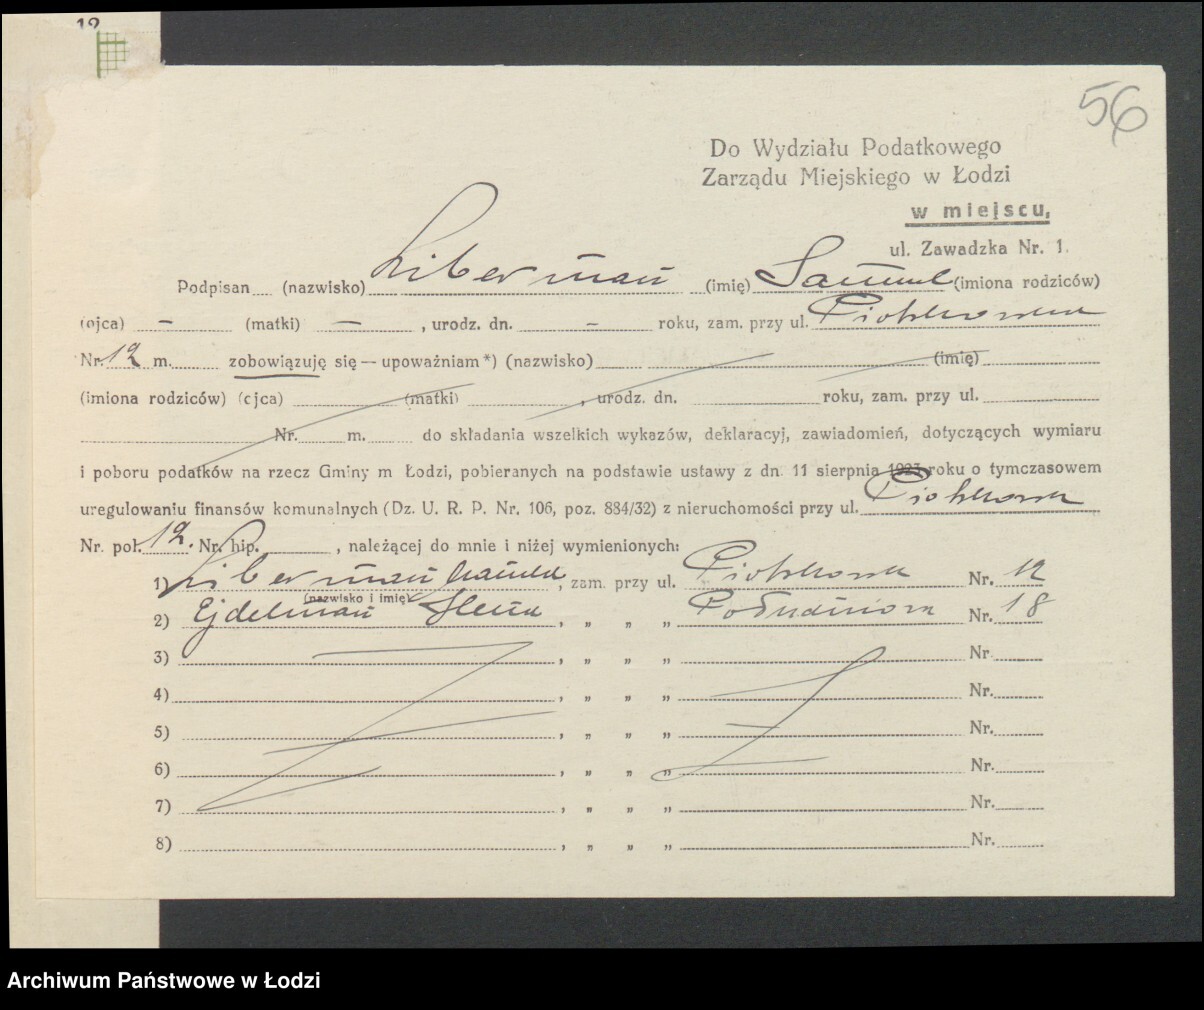 12
56
Do Wydziału Podatkowego
Zarządu Miejskiego w Łodzi
w miejscu,
ul. Zawadzka Nr. 1.
Podpisan (nazwisko) Liberman (imię) Samuel (imiona rodziców)
(ojca) — (matki) — , urodz. dn. — roku, zam. przy ul. Piotrkowska
Nr. 12 m. zobowiązuję się — upoważniam *) (nazwisko) (imię)
(imiona rodziców) (ojca) (matki) , urodz. dn. roku, zam. przy ul.
Nr. m. do składania wszelkich wykazów, deklaracyj, zawiadomień, dotyczących wymiaru
i poboru podatków na rzecz Gminy m Łodzi, pobieranych na podstawie ustawy z dn. 11 sierpnia 1923 roku o tymczasowem
uregulowaniu finansów komunalnych (Dz. U. R. P. Nr. 106, poz. 884/32) z nieruchomości przy ul. Piotrkowsk
Nr. pol. 12. Nr. hip. , należącej do mnie i niżej wymienionych:
1) Liberman , zam. przy ul. Piotrkowsk Nr. 12
(nazwisko i imię)
2) Ejdelman , „ „ „ Południowa Nr. 18
3) , „ „ „ Nr.
4) , „ „ „ Nr.
5) , „ „ „ Nr.
6) , „ „ „ Nr.
7) , „ „ „ Nr.
8) , „ „ „ Nr.
Archiwum Państwowe w Łodzi